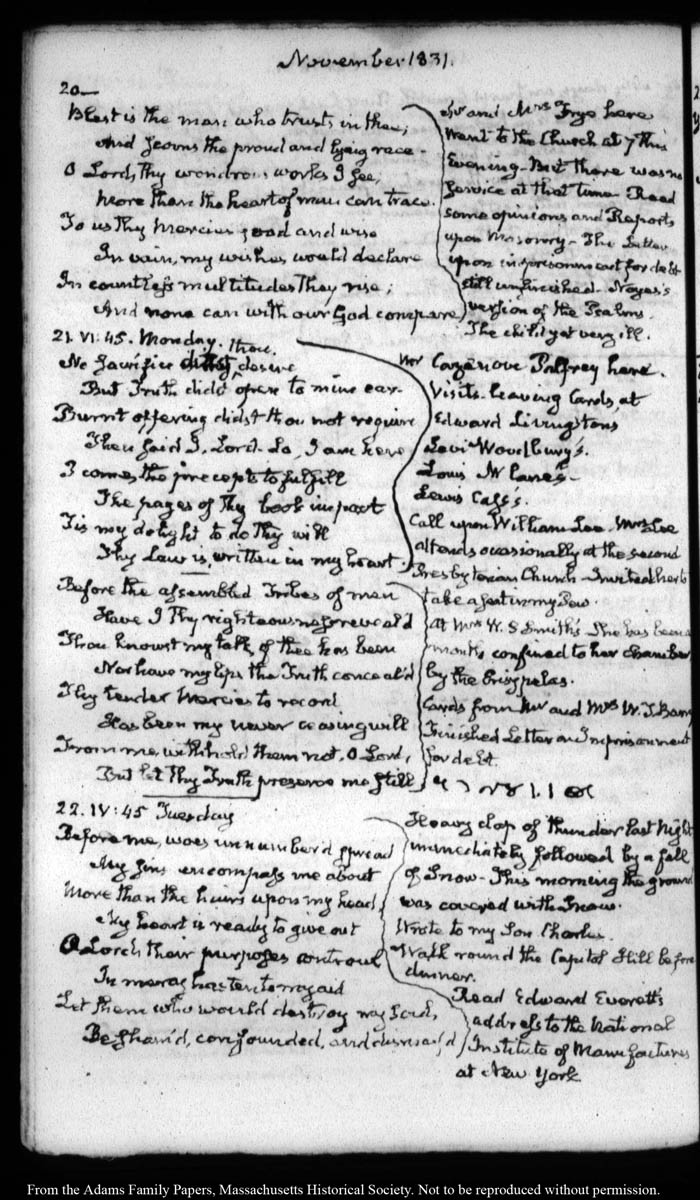 November 1831.
20—
Blest is the man who trusts in thee;
And scorns the proud and lying race -
O Lord, thy wondrous works I see;
More than the heart of man can trace.
To us thy mercies good and wise
In vain, my wishes would declare
In countless multitudes they rise;
And none can with our God compare
Mr and Mrs Frye here
Went to the Church at 7 this
Evening - But there was no
Service at that time - Read
some opinions and Reports
upon Masonry - The Letter
upon imprisonment for debt
still unfinished - Noyes's
version of the Psalms.
The child yet very ill.
21. VI:45. Monday.
thou
No Sacrifice didst desire
But Truth didst open to mine ear -
Burnt offering didst thou not require
Then said I, Lord - Lo, I am here
I come, the precepts to fulfill
The pages of Thy book impart
Tis my delight to do Thy will
Thy Law is, written in my heart.
Before the assembled Tribes of men
Have I Thy righteousness reveal'd
Thou knowst my talk, of thee has been
Nor have my lips the Truth conceal'd
Thy tender Mercies to record
Has been my never ceasing will
From me, withhold them not, O Lord,
But let Thy Truth preserve me still
Mr Cazenove Palfrey here.
Visits - leaving Cards, at
Edward Livingston's
Levi Woodbury's.
Louis McLane's -
Lewis Cass's.
Call upon William Lee. Mrs Lee
attends occasionally at the second
Presbyterian Church - Invited her to
take a seat in my Pew.
At Mrs W. S Smith's She has been
months confined to her chamber
by the Erisypelas.
Cards from Mr and Mrs W. J.
Finished Letter on Imprisonment
for debt.
22. IV:45 Tuesday
Before me, woes unnumber'd spread
My sins encompass me about
More than the hairs upon my head,
My heart is ready to give out
O Lord, their purposes controul
In mercy hasten to my aid
Let them who would destroy my soul,
Be sham'd, confounded, and dismay'd
Heavy clap of thunder last Night
immediately followed by a fall
of Snow - This morning the ground
was covered with Snow.
Wrote to my Son Charles.
Walk round the Capitol Hill before
dinner.
Read Edward Everett's
address to the National
Institute of Manufactures
at New York
From the Adams Family Papers, Massachusetts Historical Society. Not to be reproduced without permission.